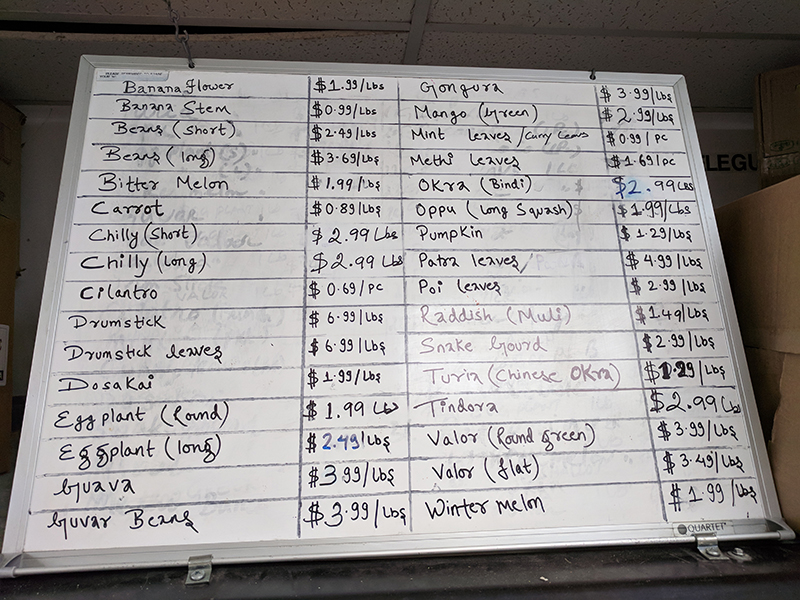 Banana Flower $1.99/Lbs
Banana Stem $0.99/Lbs
Beans (Short) $2.49/Lbs
Beans (long) $3.69/Lbs
Bitter Melon $1.99/Lbs
Carrot $0.89/Lbs
Chilly (Short) $2.99 Lbs
Chilly (long) $2.99 Lbs
Cilantro $0.69/PC
Drumstick $6.99/Lbs
Drumstick leaves $6.99/Lbs
Dosakai $1.99/Lbs
Eggplant (Round) $1.99 Lb
Eggplant (long) $2.49/Lbs
Guava $3.99/Lbs
Guvar Beans $3.99/Lbs
Gongura $3.99/Lbs
Mango (Green) $2.99/Lbs
Mint leaves /Curry Leavs $0.99/PC
Methi leaves $1.69/PC
OKra (Bindi) $2.99 Lbs
Oppu (Long Squash) $1.99/Lbs
Pumpkin $1.29/Lbs
Patra leaves $4.99/Lbs
Poi leaves $2.99/Lbs
Raddish (Muli) $1.49/Lbs
Snake Gourd $2.99/Lbs
Turia (Chinese OKra) $1.29/Lbs
Tindora $2.99 Lb
Valor (Round green) $3.99/Lbs
Valor (flat) $3.49/Lbs
Winter melon $1.99/Lbs
QUARTET
ELEGU